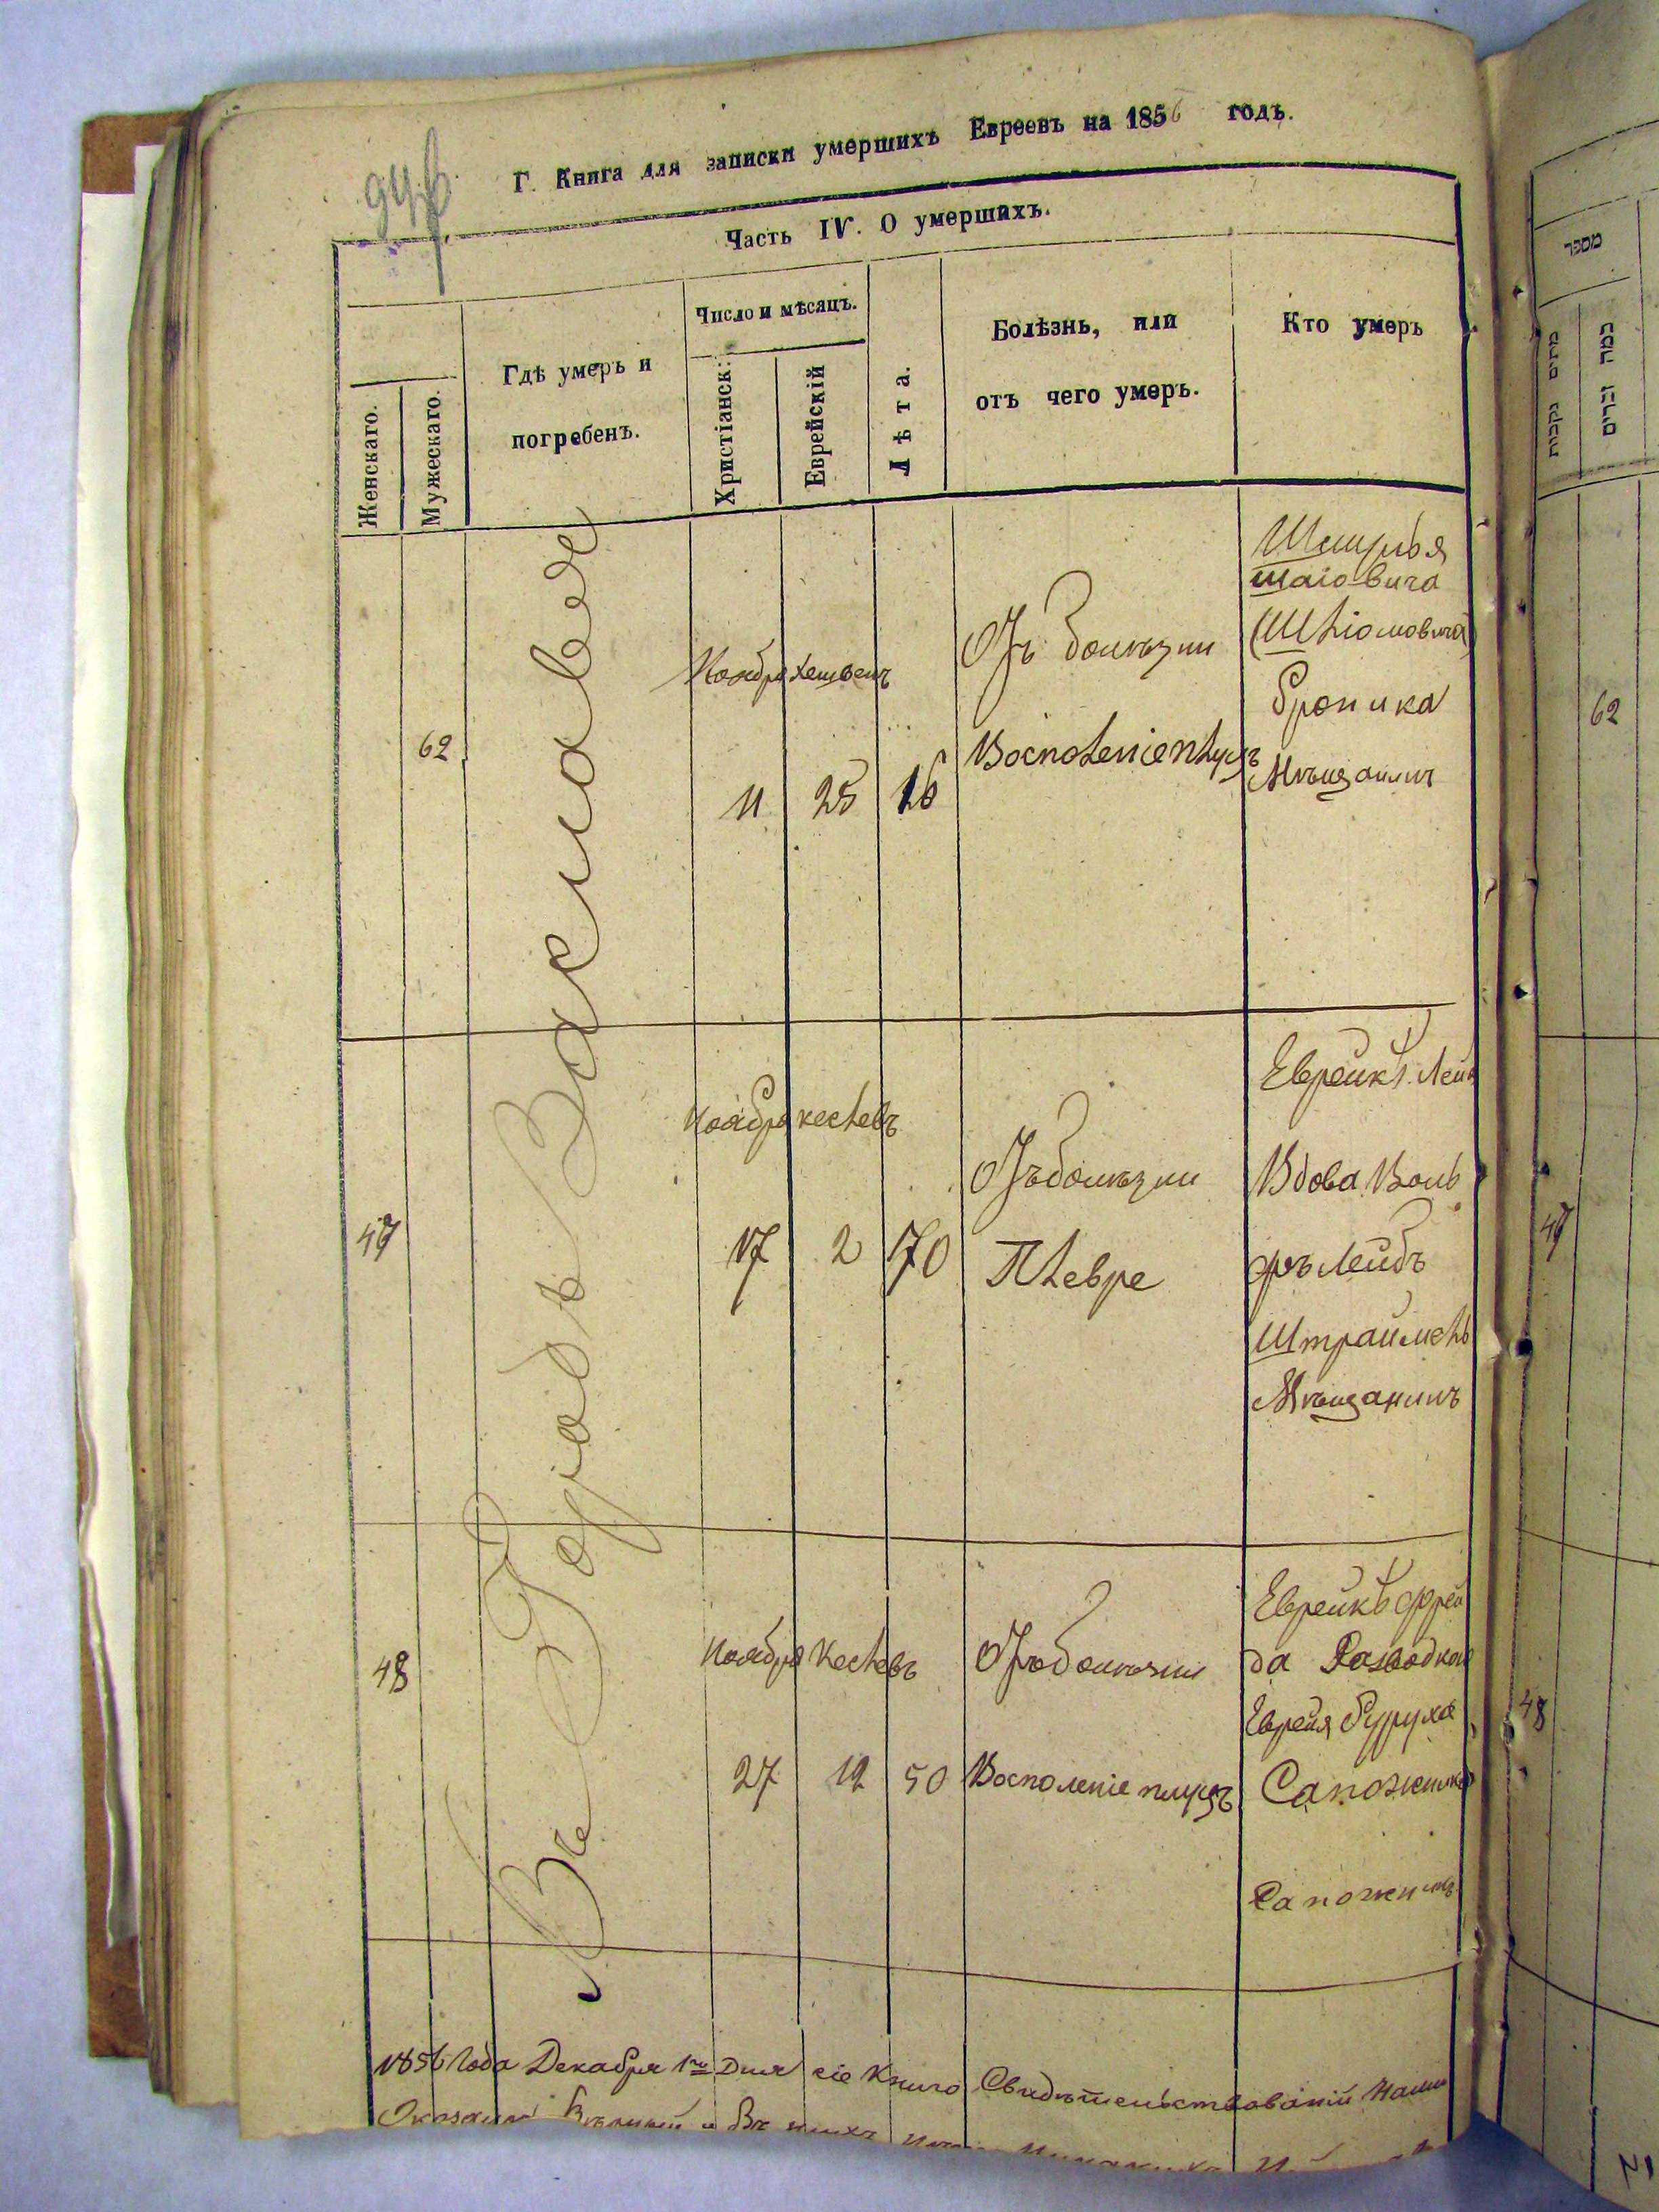 Г. Книга для записки умершихъ Евреевъ на 1856 годъ.
Часть IV. О умершихъ.
Женскаго.
Мужескаго.
Гдѣ умеръ и
погребенъ.
Число и мѣсяцъ.
Христіанск:
Еврейскій
Лѣта.
Болѣзнь, или
отъ чего умеръ.
Кто умеръ
Въ Городѣ Заславле
62
Ноября хешвенъ
11 25 16
Отъ болѣзни
Восполеніе плуцъ
шаіовича
(Шліомовича)
Броника
Мѣщанинъ
47
Ноября кеслевъ
17 2 70
Отъ болѣзни
Плевре
Еврейкѣ Лея
Вдова Воль
фъ Лейбъ
Штраймель
Мѣщанинъ
48
Ноября Кеслевъ
27 12 50
Отъ болѣзни
Восполеніе плуцъ
Еврейкѣ Фрей
да Разводкою
Еврея Буруха
Сапожника
Сапожникъ
1856 Года Декабря 1го Дня сіе Книга Свидѣтельствованій Нами
מספר
מתים נקבות
כמה זכרים
62
47
48